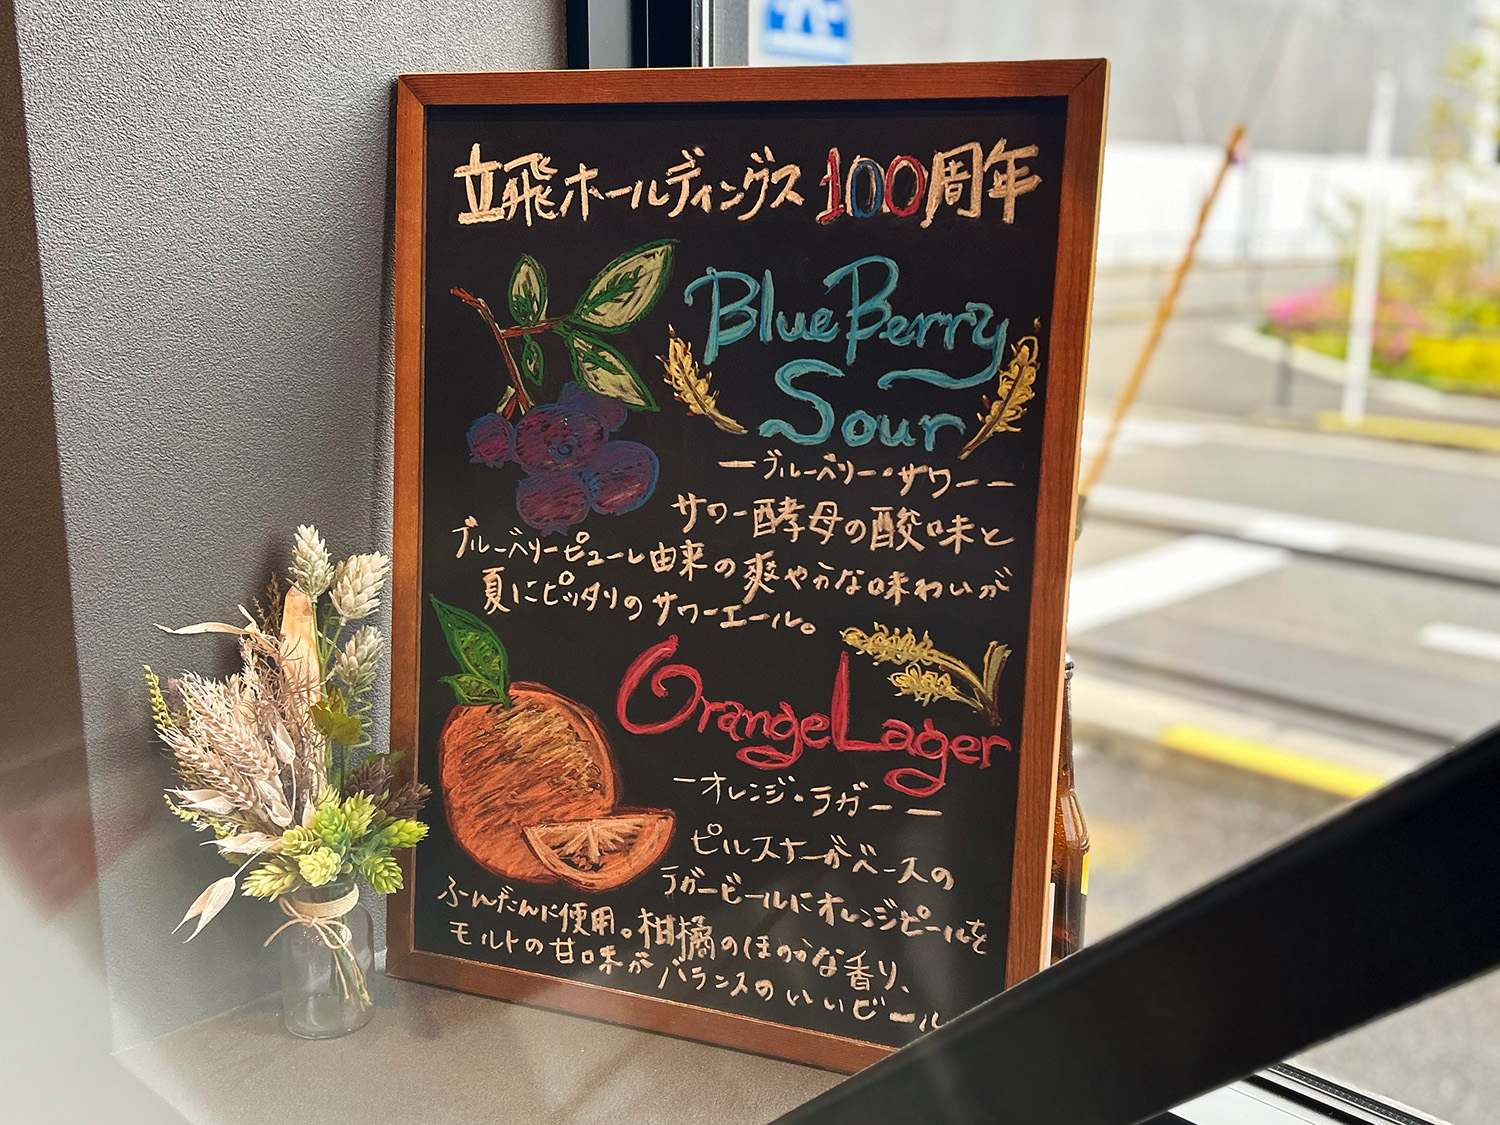 立飛ホールディングス 100周年
Blue Berry
Sour
ーブルーベリー・サワーー
サワー酵母の酸味と
ブルーベリーピューレ由来の爽やかな味わいが
夏にピッタリのサワーエール。
Orange Lager
ーオレンジ・ラガーー
ピルスナーがベースの
ラガービールにオレンジピールを
ふんだんに使用。柑橘のほのかな香り、
モルトの甘味がバランスのいいビール